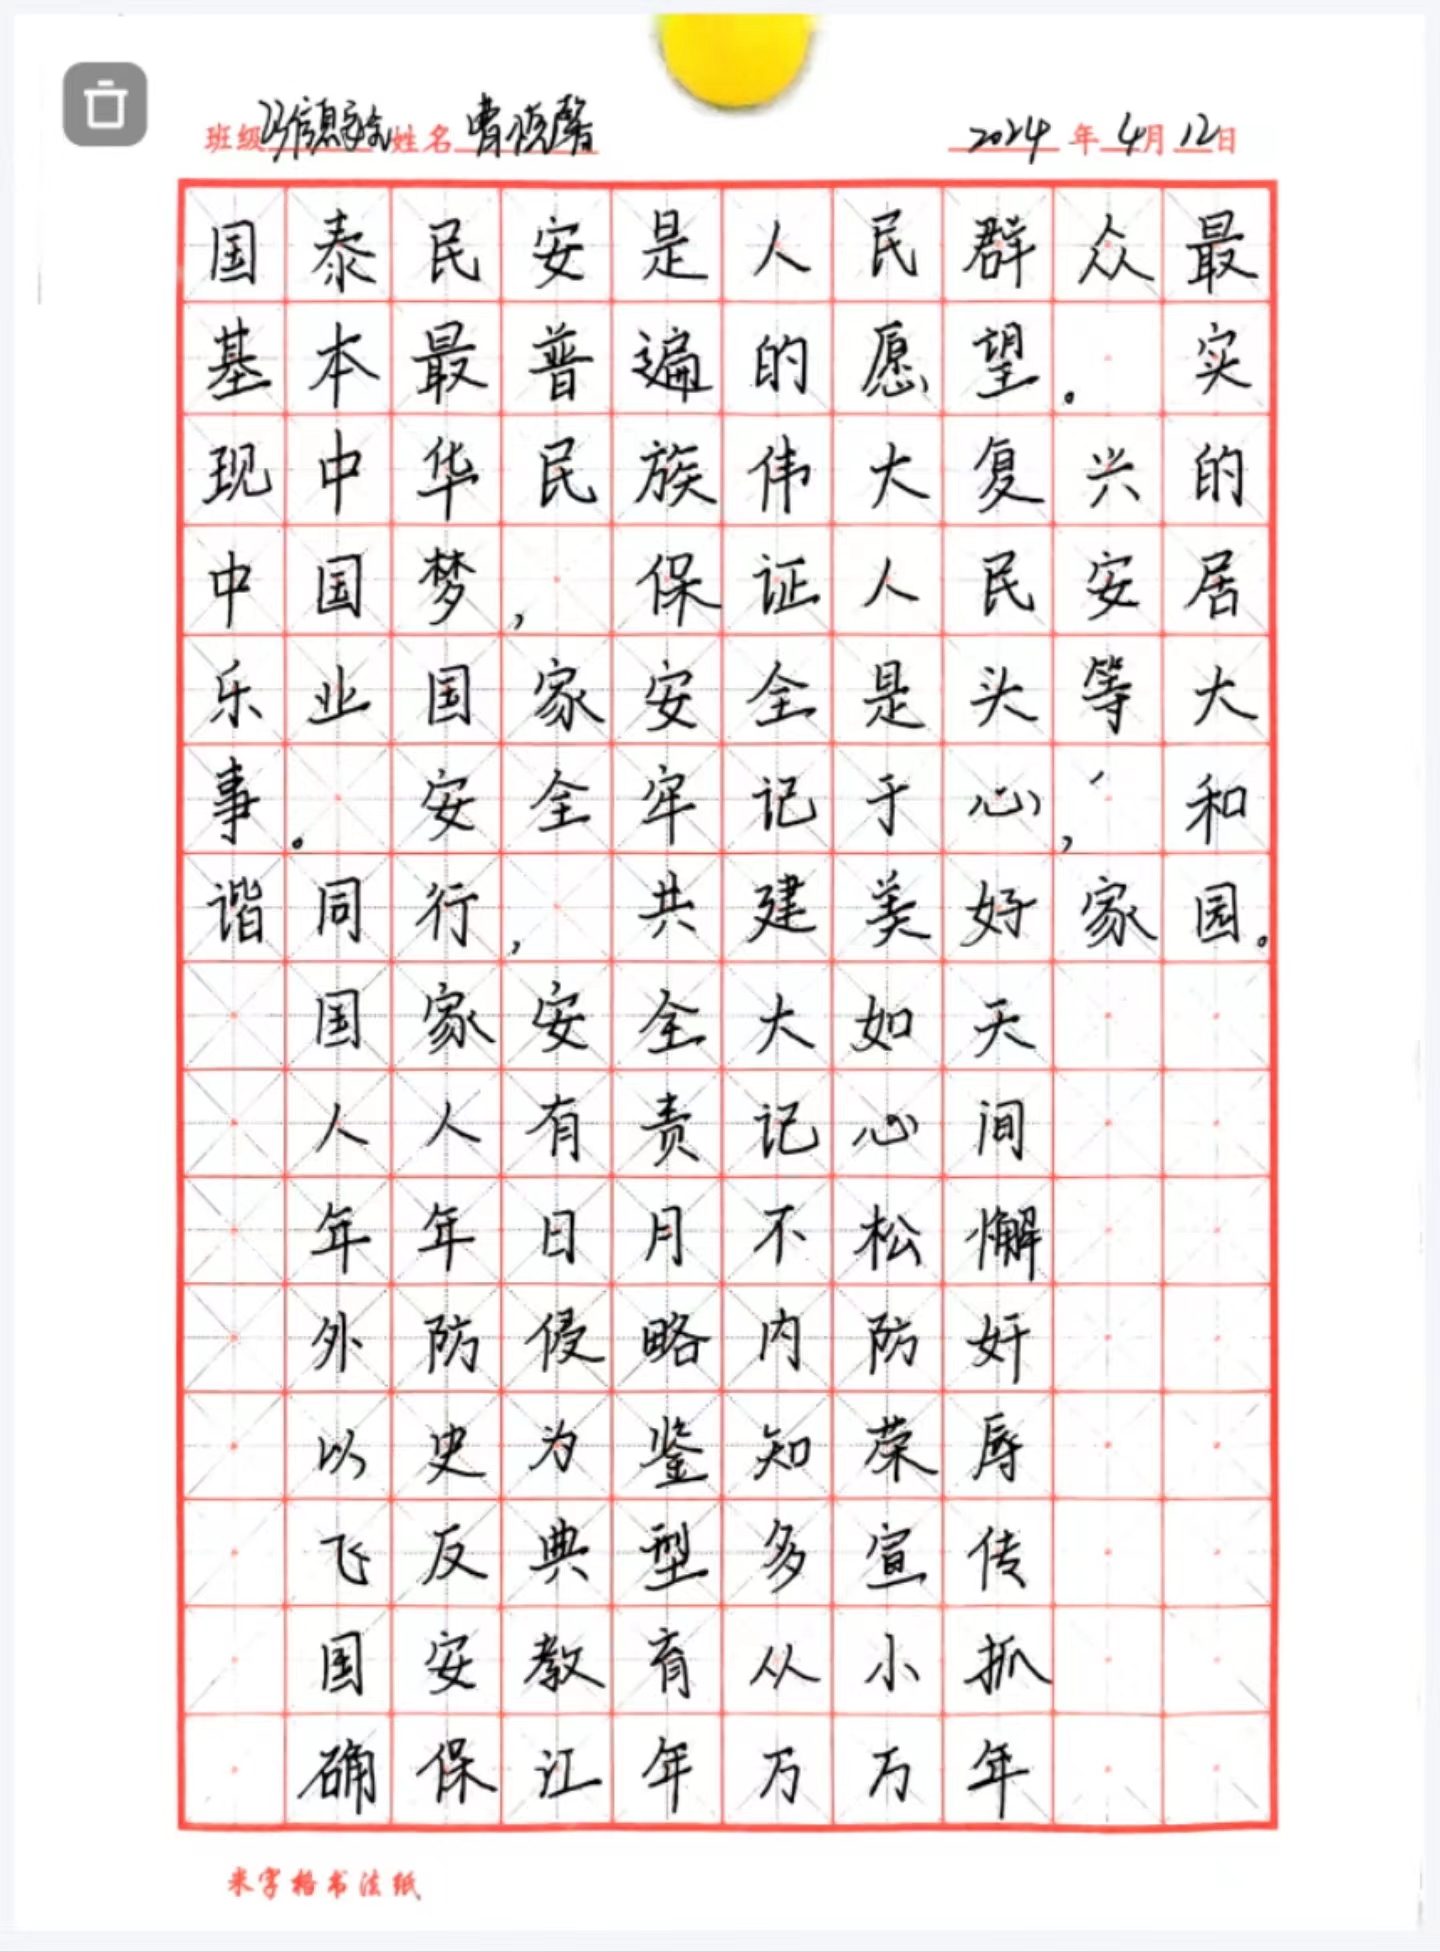 班级 姓名 2024 年 4月 12日
国泰民安是人民群众最
基本最普遍的愿望。实
现中华民族伟大复兴的
中国梦，保证人民安居
乐业国家安全是头等大
事。安全牢记于心，和
谐同行，共建美好家园。
国家安全大如天
人人有责记心间
年年日月不松懈
外防侵略内防奸
以史为鉴知荣辱
飞反典型多宣传
国安教育从小抓
确保江年万万年
米字格书法纸